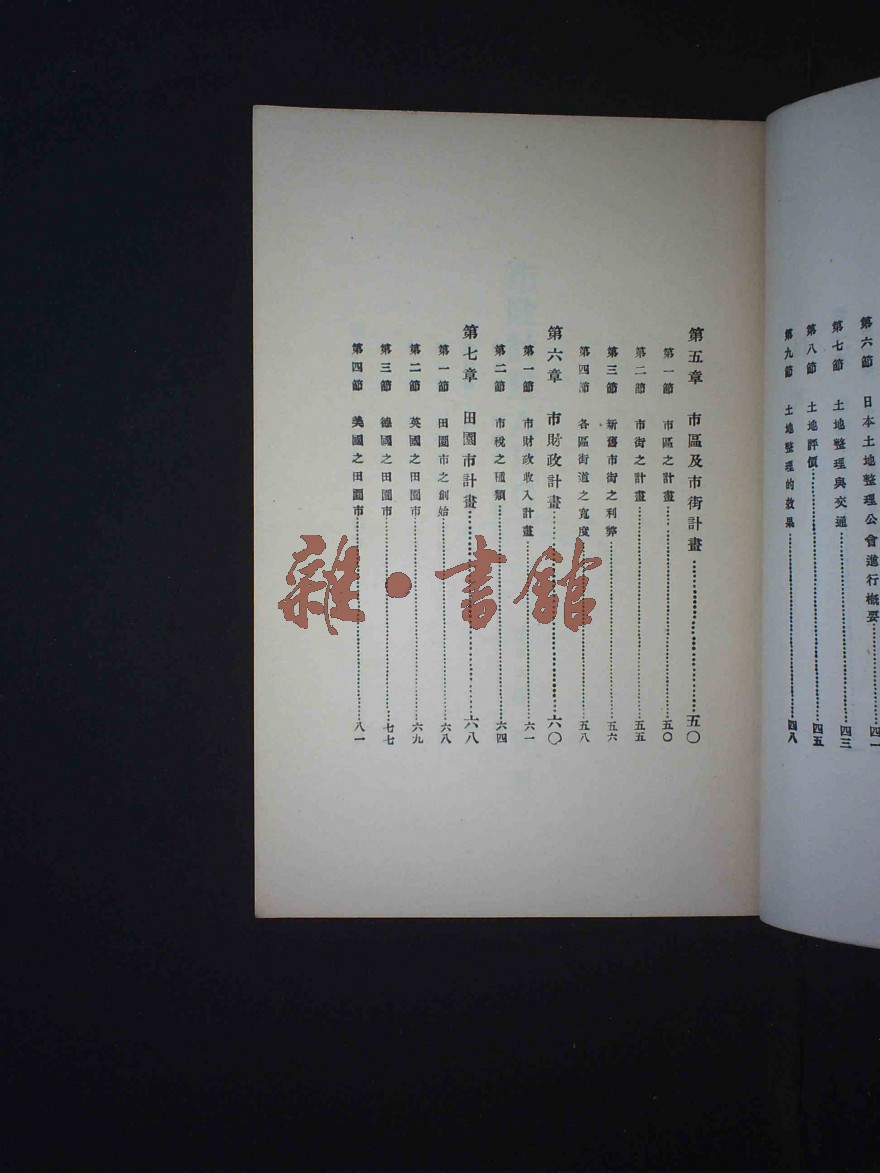 第六節　日本土地整理公會進行概要……四一
第七節　土地整理與交通……四三
第八節　土地評價……四五
第九節　土地整理的效果……四八
第五章　市區及市街計畫……五〇
第一節　市區之計畫……五〇
第二節　市街之計畫……五五
第三節　新舊市街之利弊……五六
第四節　各區街道之寬度……五八
第六章　市財政計畫……六〇
第一節　市財政收入計畫……六一
第二節　市稅之種類……六四
第七章　田園市計畫……六八
第一節　田園市之創始……六八
第二節　英國之田園市……六九
第三節　德國之田園市……七七
第四節　美國之田園市……八一
雜·書館